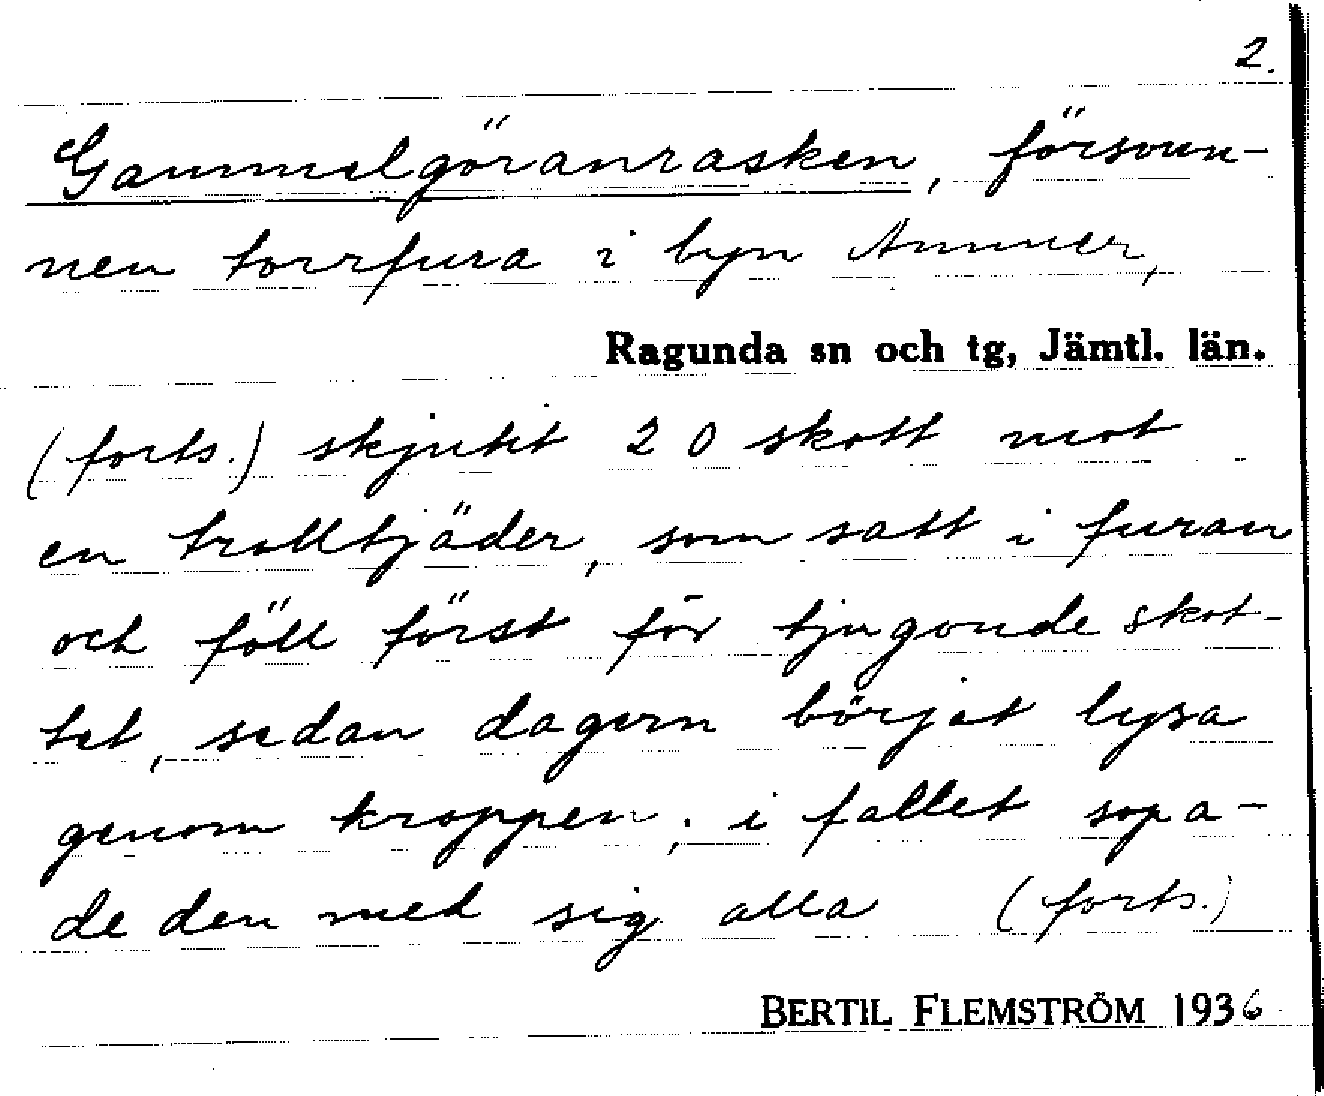 2.
Gammelgöranrasken, försvun-
nen torrfura i byn Ammer,
Ragunda sn och tg, Jämtl. län.
(forts.) skjutit 20 skott mot
en trolltjäder, som satt i furan
och föll först för tjugonde skot-
tet, sedan dagern börjat lysa
genom kroppen; i fallet sopa-
de den med sig alla (forts.)
BERTIL FLEMSTRÖM 1936